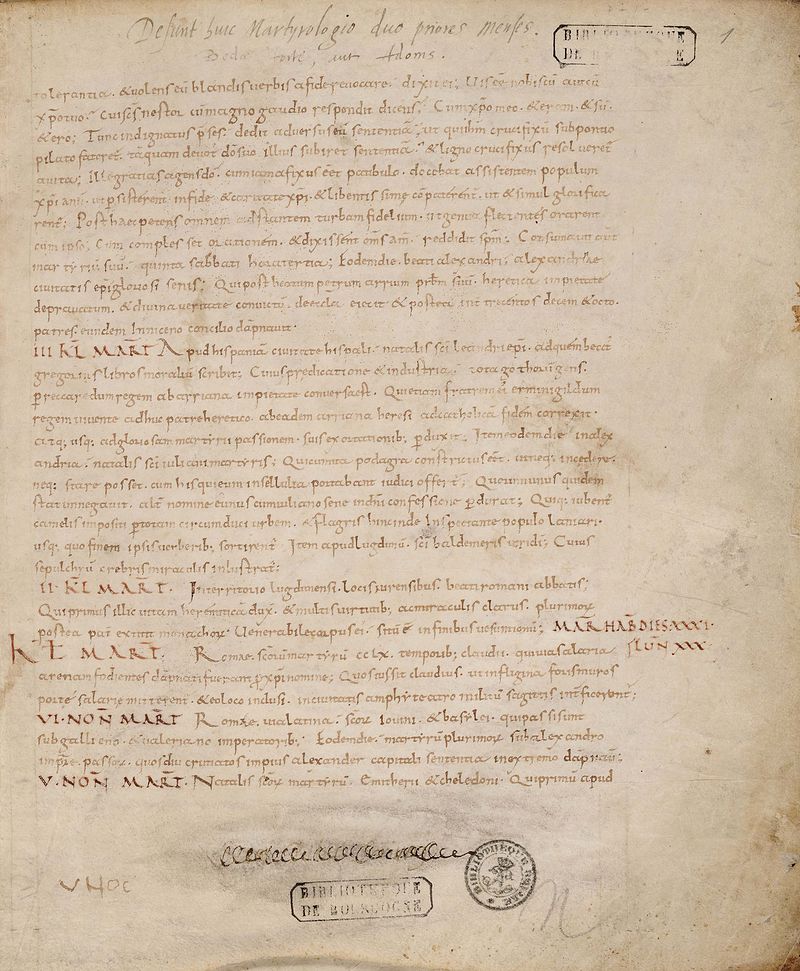 Desunt huic Martyrologio duo priores menses.
Beda forte, aut Adonis.
BIBLIOTHEQUE
DE B
1
tolerantia. & volens eū blandis verbis a fide revocare. dixit ei;
&ero; Tunc indignatus pses. dedit adversus eū sententiā. ut qui hūm crucifixū sub pontio
pilato fateret. tāquam devot dō suo illius subiret sententiā. & ligno crucifixus resol veret
avita; Ille gratias agens dō. cum iam afixus eēt patibulo. docebat assistentem populum
xpianū. ut psisterent in fide & caritate xpi. & libentissime cōpaterent. ut & simul glorifica
rent; Post haec petens omnem adstantem turbam fidelium. ut genua flectentes orarent
cum ipso; Cum complesset orationem. & dixissent om̄s am̄. reddidit sp̄m; Consummavit aūt
martyriū suū. quinta sabbati hora tertia; Eodem die. beati alexandri. alexandriae
civitatis ep̄i gloriosi senis; Qui post beatum petrum arrium prb̄m suū. heretica impietate
depravatum. & divina veritate convictū. de eccl̄a eiecit & postea int trecentos decem & octo.
patres. eundem in niceno concilio dāpnavit.
III KL MART. Apud hispaniā civitate hispali. natalis sc̄i leandri ep̄i. ad quem beat̄
gregorius libros moraliū scribit; Cuius predicatione & industria. tota gothorū gens.
p reccaredum regem ab arriana impietate conversa ē. Qui etiam fratrem ei erminigildum
regem vivente adhuc patre heretico. ab eadem arriana heresi ad catholicā fidem correxit.
atq; usq; ad gloriosam martyrii passionem. suis exortationib; pduxit. Item eodem die in alex
andria. natalis sc̄i iuliani martyris; Qui cum ita podagra constrictus eēt. ut neq; incedere.
neq; stare posset. cum his qui eum in sellula portabant iudici offert; Quorum unus quidem
statim negavit. alt nomine eunus cum iuliano sene in dn̄i confessione pdurat; Qui q; iubent
camelis impositi p totam circumduci urbem. & flagris hinc inde inspectante populo laniari.
usq; quo finem ipsis verberib; sortirent. Item apud lugdunū. sc̄i baldomeris viri dī; Cuius
sepulchrū crebris miraculis inlustrat;
II KL MART. In territorio lugdunensi. locis iurensibus. beati romani abbatis;
Qui primus illic vitam heremiticā dux. & multis virtutib; ac miraculis clarus. plurimorum
postea pat extitit monachorum. Venerabile corpus ei. situ ē in finibus vesuntionū;
MAR HAB DIES XXXI.
LUN XXX.
KL MART. Romae. sc̄orum martyrū cclx. temporib; claudii. qui via salaria
arenam fodientes dāpnati fuerant p xpi nomine; Quos iussit claudius. ut in figlina foris muros
porte salarie mitterent. & eo loco inclusi. in civitatis amphyteatro militū sagittis interficerent;
VI. NON MART Romae. via latina. sc̄or iovini. & basilei. qui passi sunt
sub gallieno. & valeriano imperatorib; Eodem die. martyrū plurimor. sub alexandro
impre. passor. quos diu cruciatos impius alexander capitali sententia in extremo dāpnavit;
V. NON MART. Natalis sc̄or martyrū. Emitherii & cheledoni. Qui primū apud
VHOC
BIBLIOTHEQUE
DE BOURGOGNE
BIBLIOTHÈQUE ROYALE